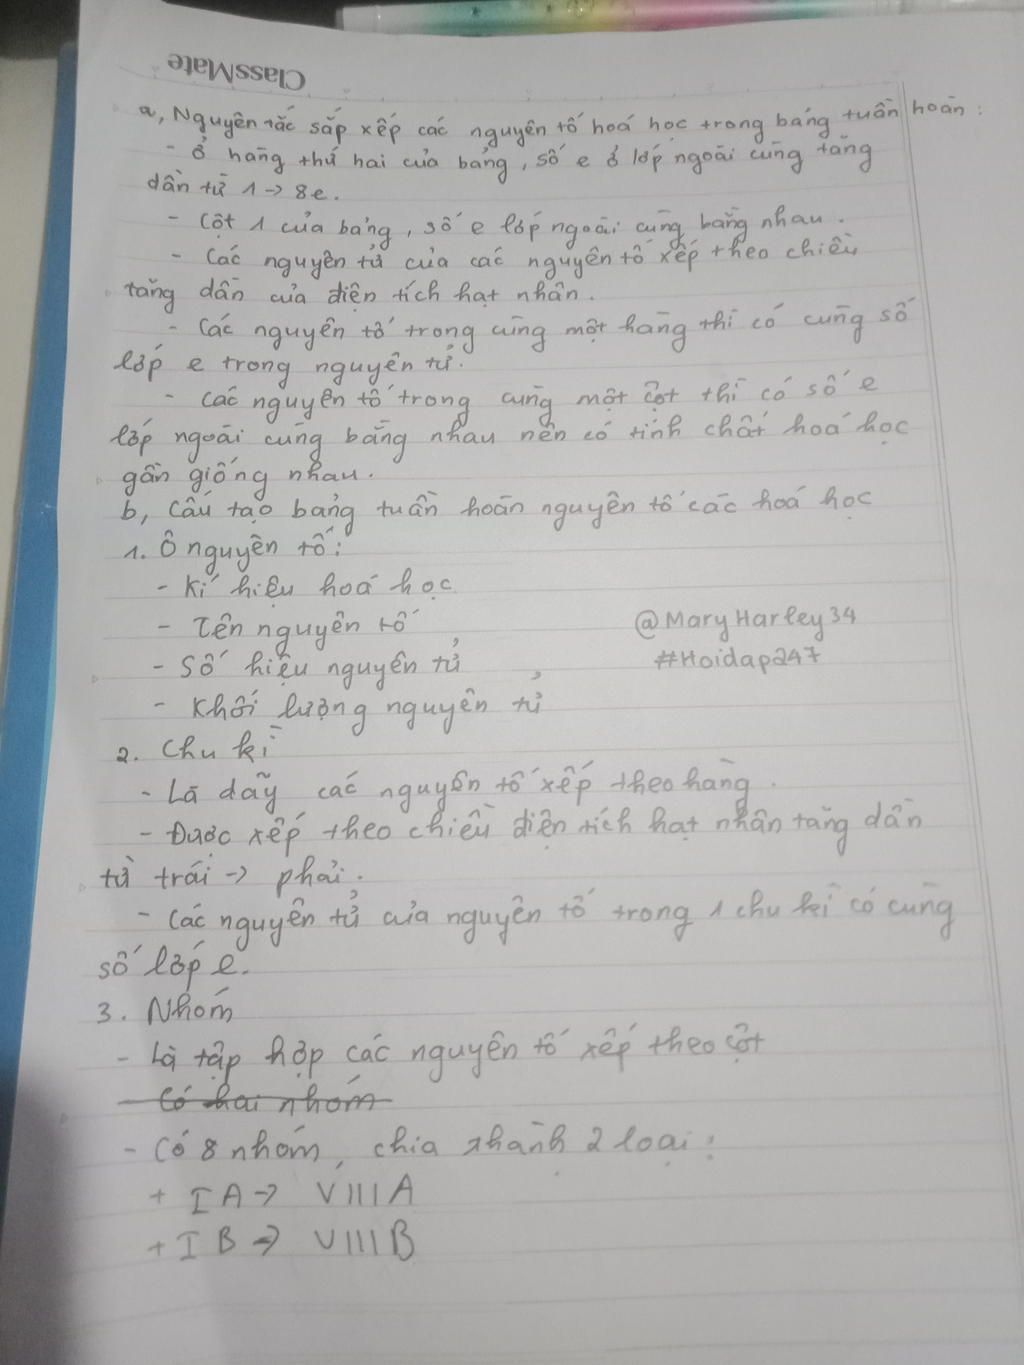 ClassMate
a, Nguyên tắc sắp xếp các nguyên tố hoá học trong bảng tuần hoàn :
- ở hàng thứ hai của bảng, số e ở lớp ngoài cùng tăng
dần từ 1 → 8e.
- Cột 1 của bảng, số e lớp ngoài cùng bằng nhau.
- Các nguyên tử của các nguyên tố xếp theo chiều
tăng dần của điện tích hạt nhân.
- Các nguyên tố trong cùng một hàng thì có cùng số
lớp e trong nguyên tử.
- Các nguyên tố trong cùng một cột thì có số e
lớp ngoài cùng bằng nhau nên có tính chất hoá học
gần giống nhau.
b, Cấu tạo bảng tuần hoàn nguyên tố các hoá học
1. Ô nguyên tố:
- Kí hiệu hoá học
- Tên nguyên tố
@MaryHarley34
- Số hiệu nguyên tử
#Hoidap247
- Khối lượng nguyên tử
2. Chu kì
- Là dãy các nguyên tố xếp theo hàng.
- Được xếp theo chiều điện tích hạt nhân tăng dần
từ trái → phải.
- Các nguyên tử của nguyên tố trong 1 chu kì có cùng
số lớp e.
3. Nhóm
- Là tập hợp các nguyên tố xếp theo cột
- Có hai nhóm
- Có 8 nhóm, chia thành 2 loại:
+ IA → VIIIA
+ IB → VIIIB